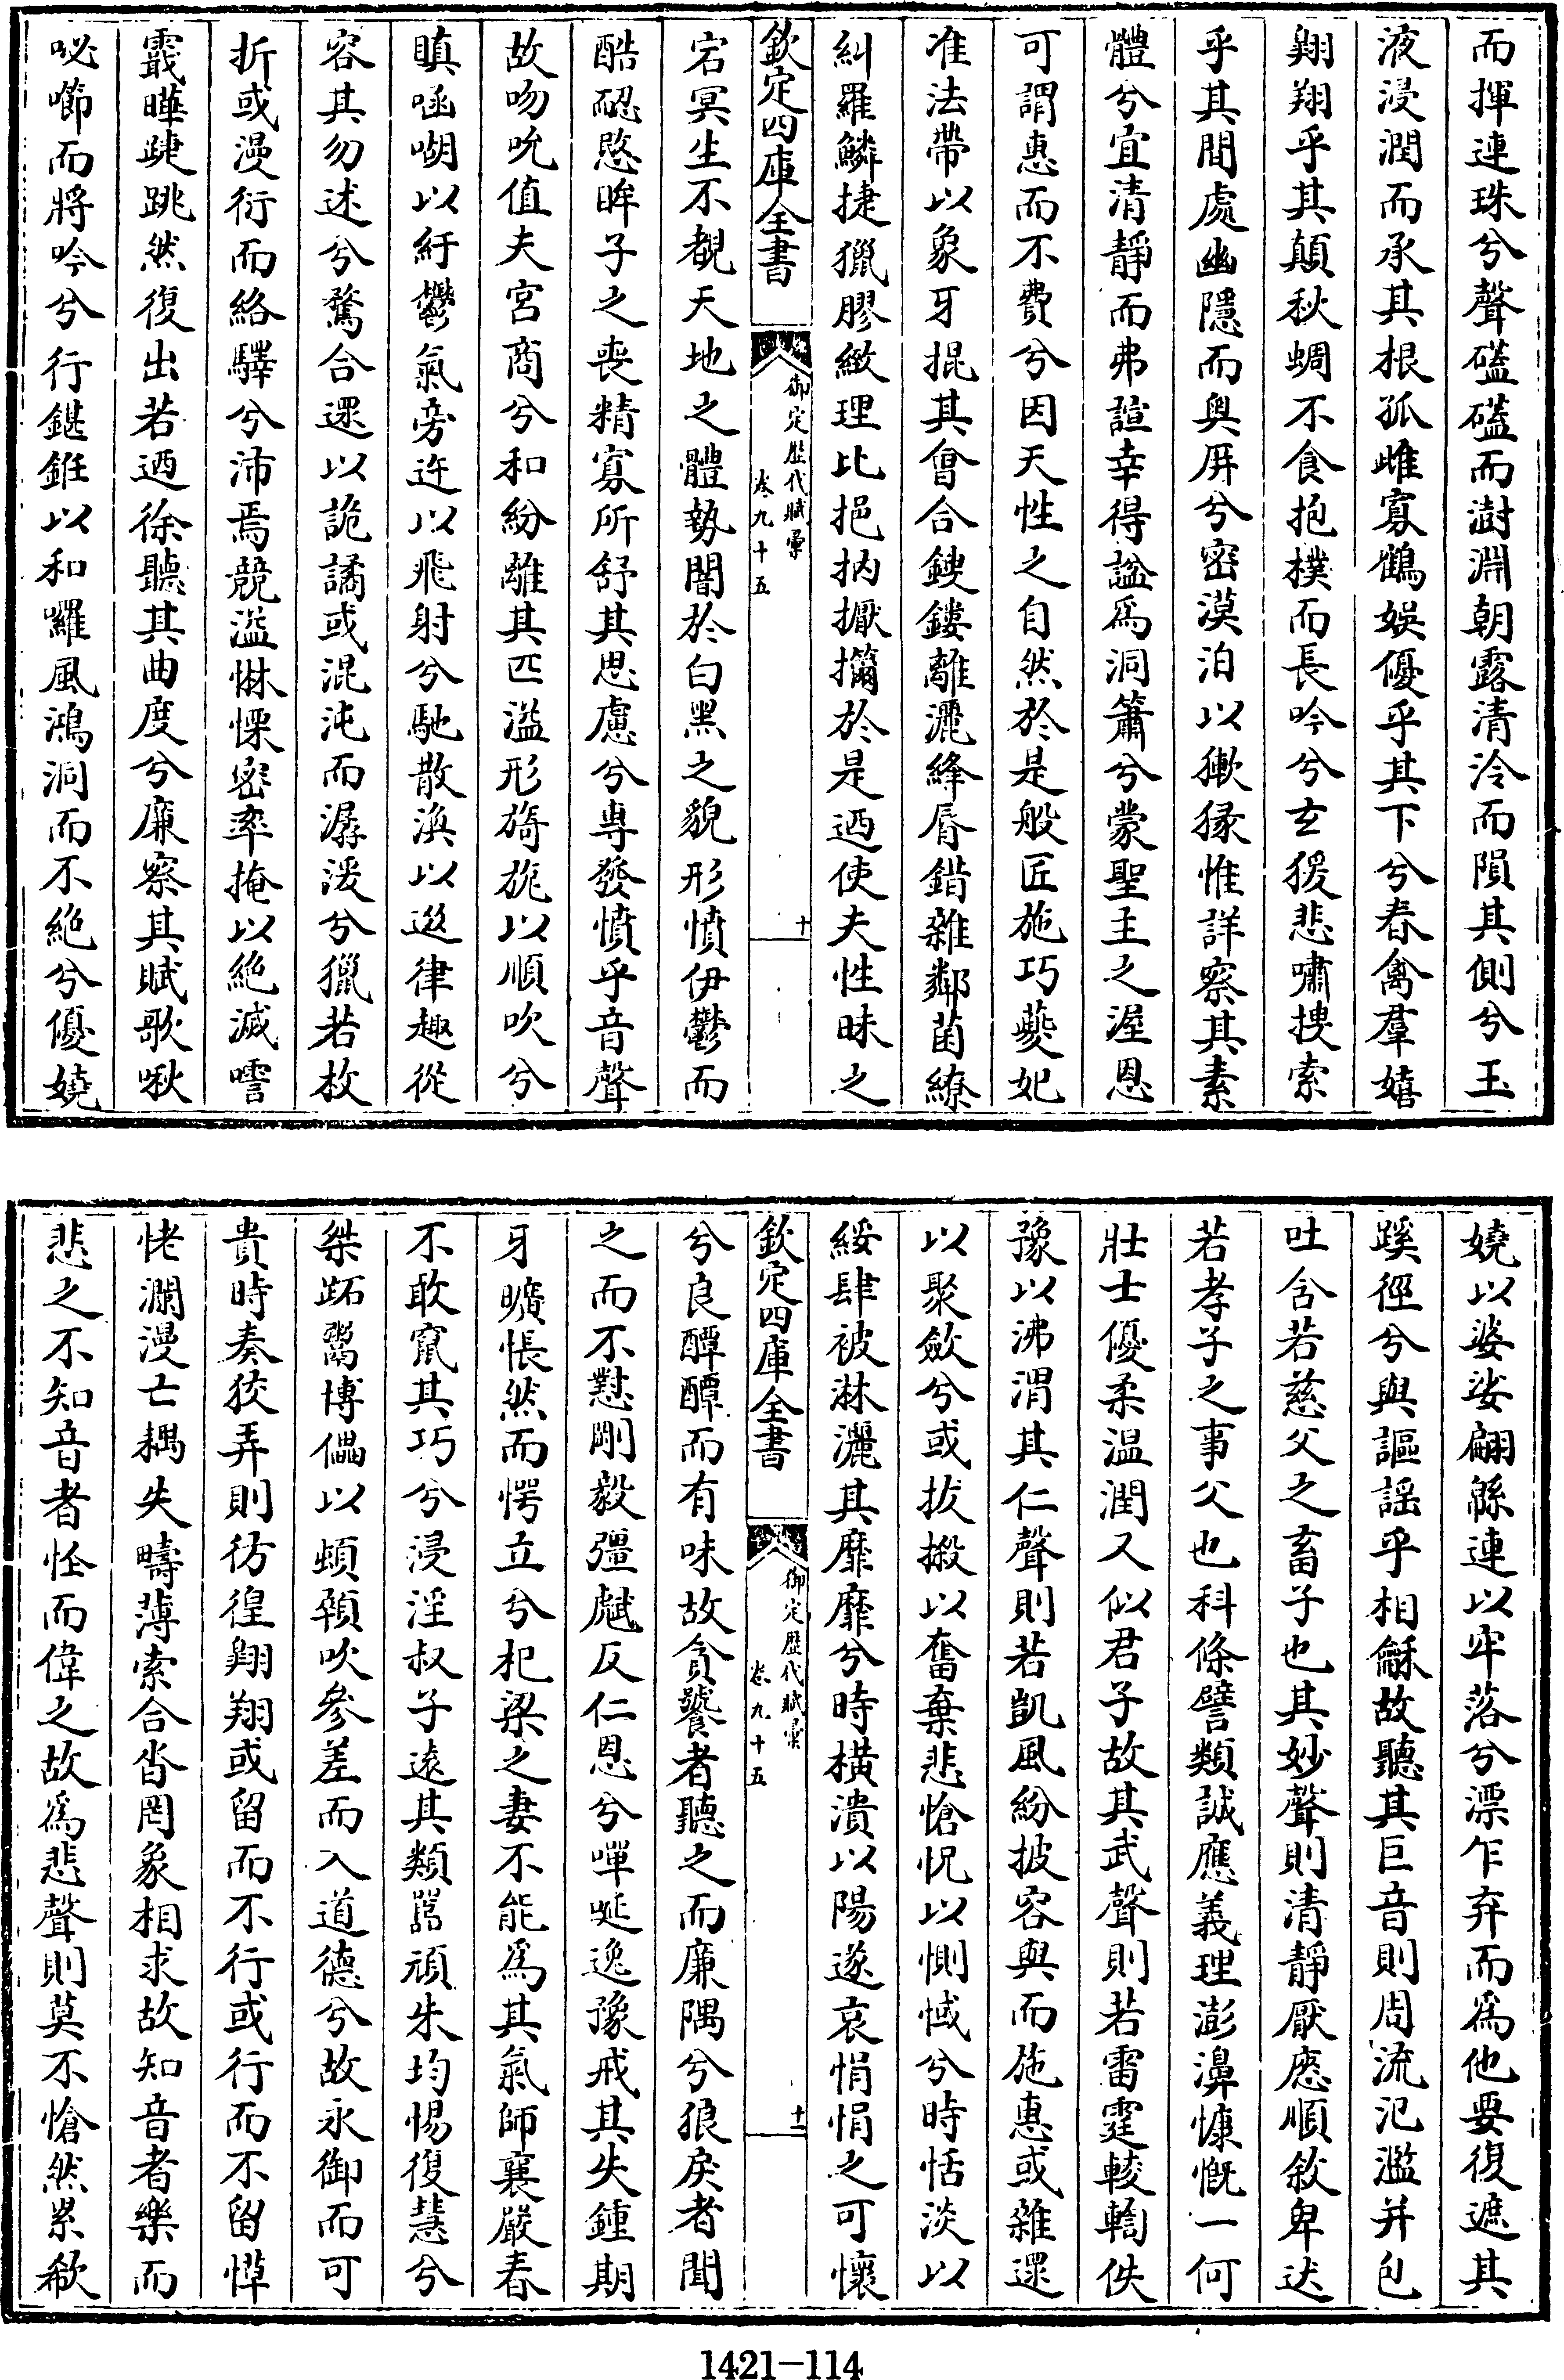 而揮連珠兮聲礚礚而澍淵朝露清泠而隕其側兮玉
液浸潤而承其根孤雌寡鶴娛優乎其下兮春禽羣嬉
翱翔乎其顛秋蜩不食抱樸而長吟兮玄猨悲嘯搜索
乎其間處幽隱而奥屏兮密漠泊以㺑猭惟詳察其素
體兮宜清靜而弗諠幸得諡爲洞簫兮蒙聖主之渥恩
可謂惠而不費兮因天性之自然於是般匠施巧夔妃
准法帶以象牙掍其會合鎪鏤離灑絳脣錯雜鄰菌繚
糾羅鱗捷獵膠緻理比挹抐擫㩶於是迺使夫性昧之
欽定四庫全書
御定歷代賦彙
卷九十五
十
宕冥生不覩天地之體勢闇於白黑之貌形憤伊鬱而
酷䣽愍眸子之喪精寡所舒其思慮兮專發憤乎音聲
故吻吮值夫宮商兮和紛離其匹溢形旖旎以順吹兮
瞋㖤㗅以紆鬱氣旁迕以飛射兮馳散渙以逫律趣從
容其勿述兮騖合遝以詭譎或混沌而潺湲兮獵若枚
折或漫衍而絡驛兮沛焉競溢惏慄密率掩以絶滅㗼
霵曄踕跳然復出若迺徐聽其曲度兮廉察其賦歌啾
咇㘉而將吟兮行鍖銋以和囉風鴻洞而不絶兮優嬈
嬈以婆娑翩緜連以牢落兮漂乍弃而爲他要復遮其
蹊徑兮與謳謡乎相龢故聽其巨音則周流氾濫并包
吐含若慈父之畜子也其妙聲則清靜厭㥷順敘卑迏
若孝子之事父也科條譬類誠應義理澎濞慷慨一何
壯士優柔温潤又似君子故其武聲則若雷霆輘輷佚
豫以沸渭其仁聲則若凱風紛披容與而施惠或雜遝
以聚斂兮或拔摋以奮棄悲愴怳以惻惐兮時恬淡以
綏肆被淋灑其靡靡兮時横潰以陽遂哀悁悁之可懷
欽定四庫全書
御定歷代賦彙
卷九十五
十一
兮良醰醰而有味故貪饕者聽之而廉隅兮狼戾者聞
之而不懟剛毅彊虣反仁恩兮嘽唌逸豫戒其失鍾期
牙曠悵然而愕立兮杞梁之妻不能爲其氣師襄嚴春
不敢竄其巧兮浸淫叔子遠其類嚚頑朱均惕復慧兮
桀跖鬻博儡以頓顇吹參差而入道德兮故永御而可
貴時奏狡弄則彷徨翱翔或留而不行或行而不留愺
恅瀾漫亡耦失疇薄索合沓罔象相求故知音者樂而
悲之不知音者怪而偉之故爲悲聲則莫不愴然累欷
1421-114